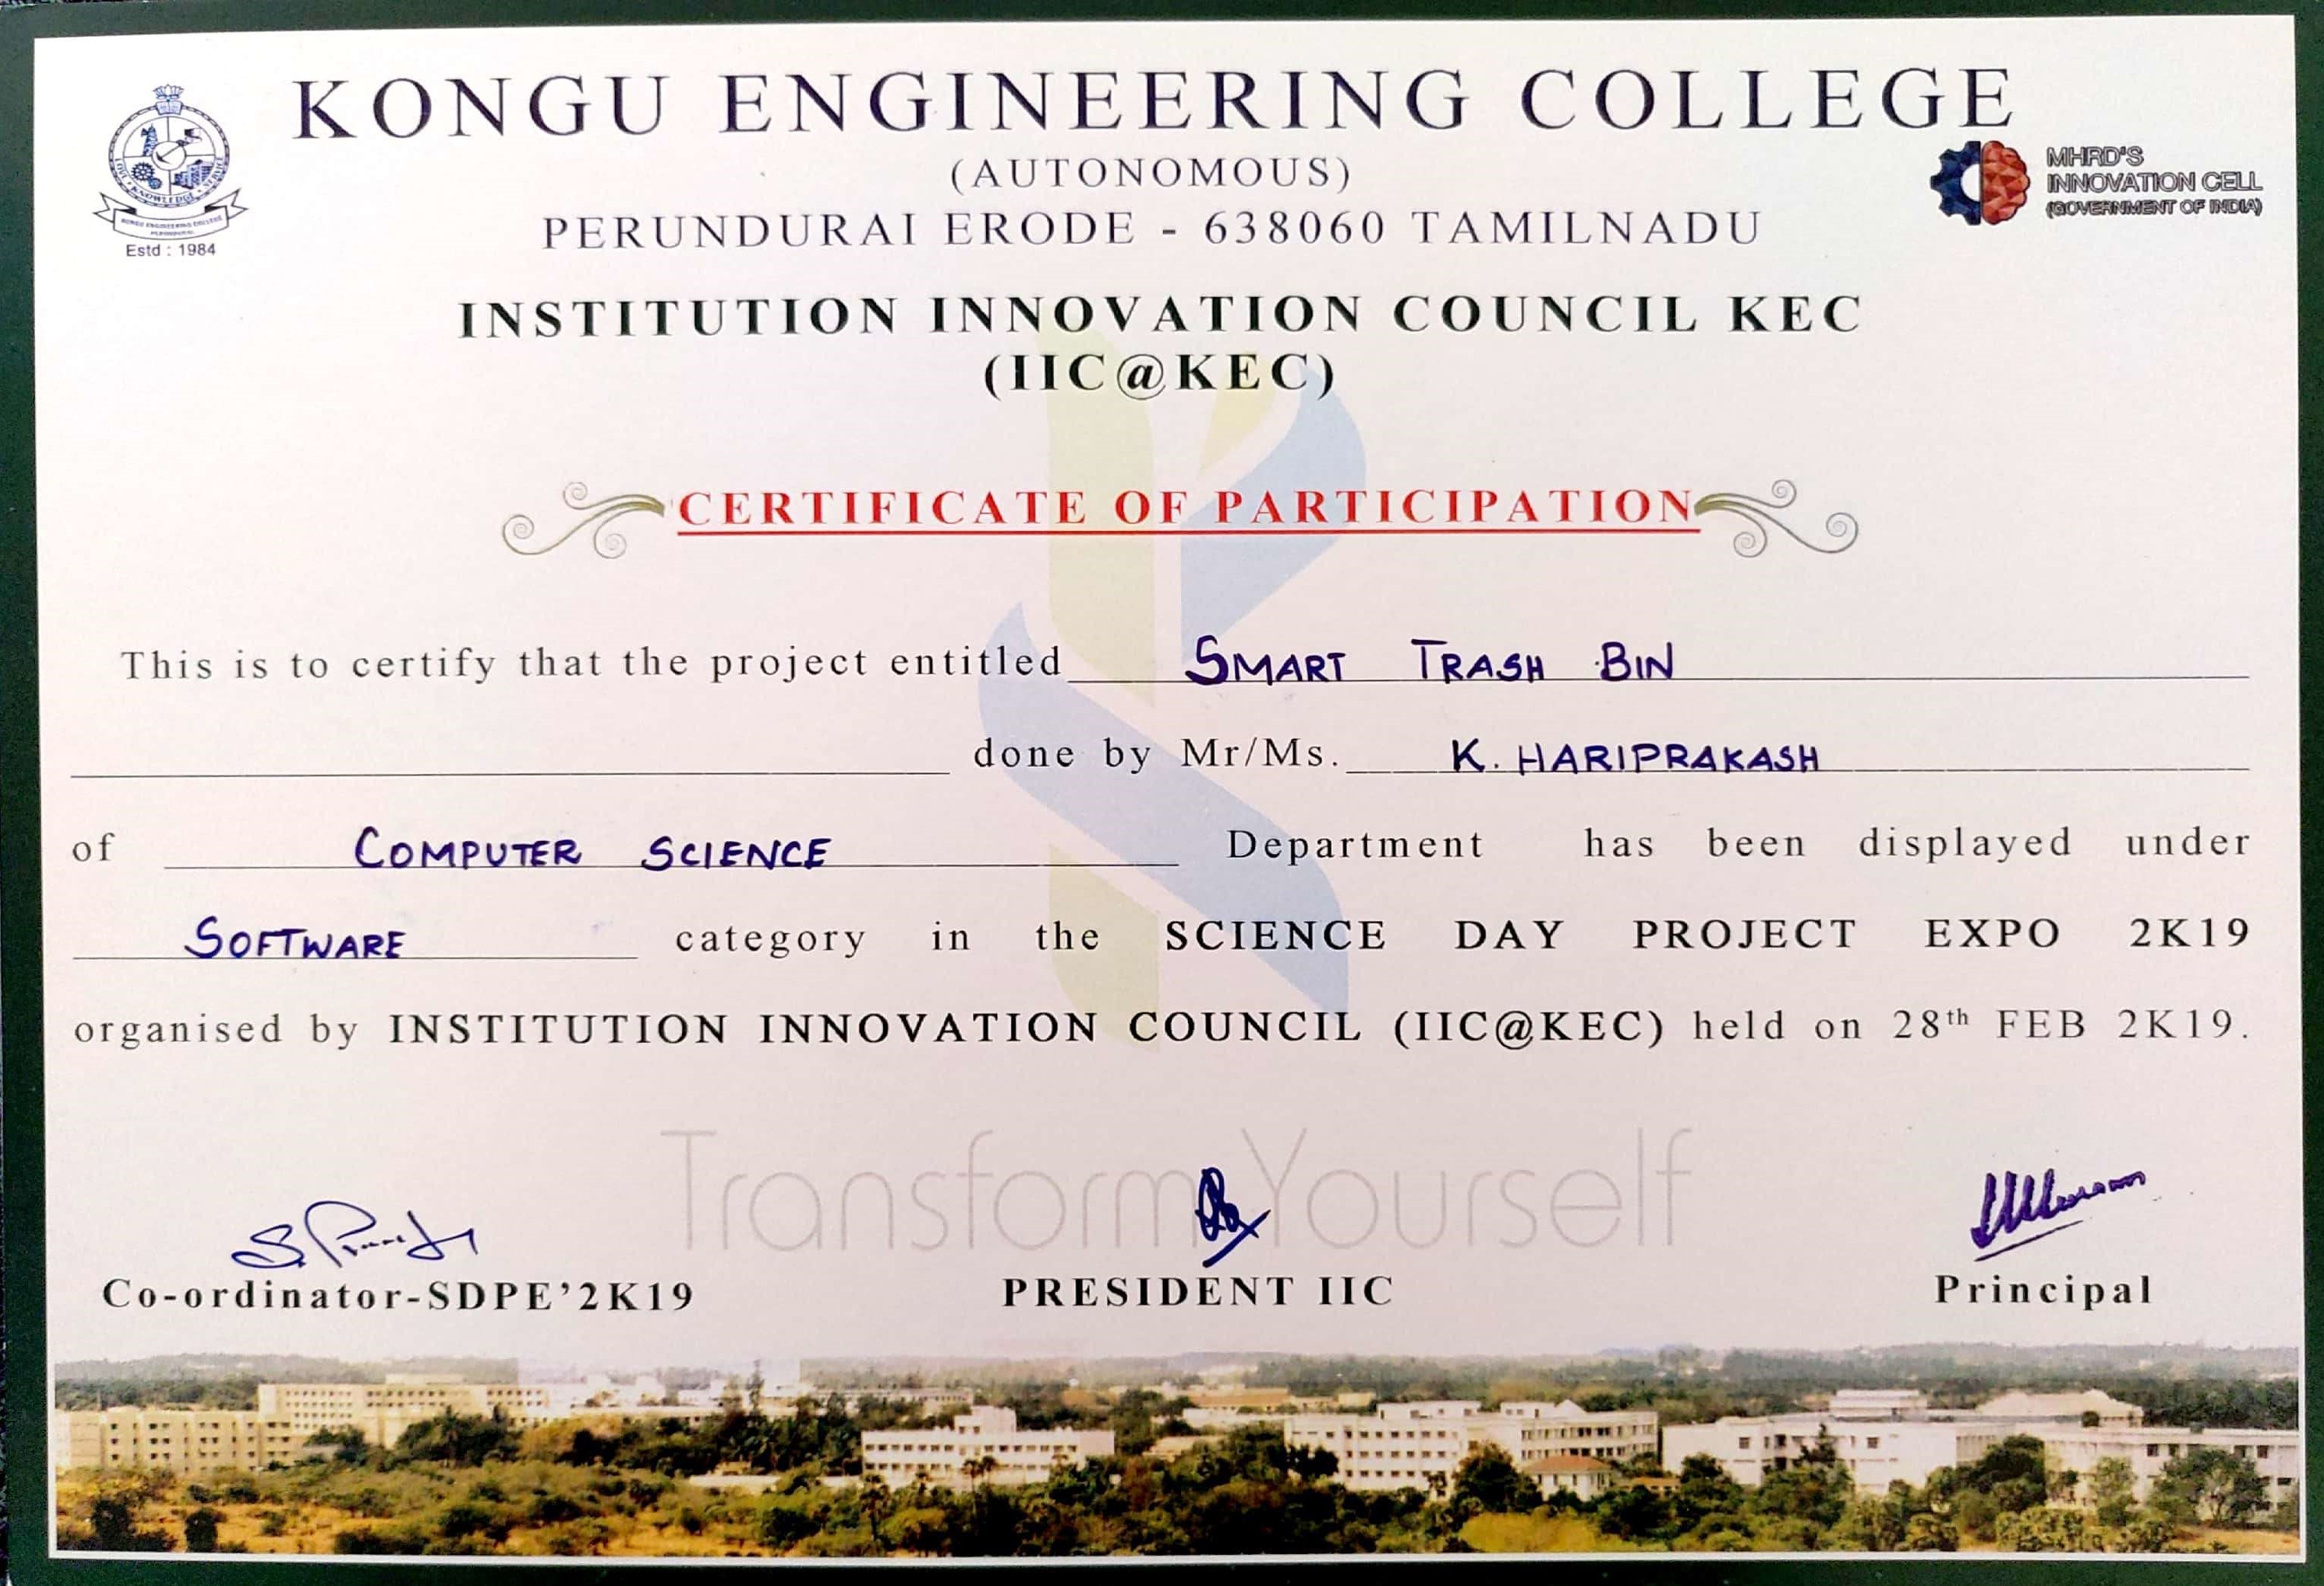 KONGU ENGINEERING COLLEGE
(AUTONOMOUS)
PERUNDURAI ERODE - 638060 TAMILNADU
Estd : 1984
MHRD'S
INNOVATION CELL
(GOVERNMENT OF INDIA)
INSTITUTION INNOVATION COUNCIL KEC
(IIC@KEC)
CERTIFICATE OF PARTICIPATION
This is to certify that the project entitled SMART TRASH BIN
done by Mr/Ms. K. HARIPRAKASH
of COMPUTER SCIENCE Department has been displayed under
SOFTWARE category in the SCIENCE DAY PROJECT EXPO 2K19
organised by INSTITUTION INNOVATION COUNCIL (IIC@KEC) held on 28th FEB 2K19.
Transform Yourself
Co-ordinator-SDPE'2K19 PRESIDENT IIC Principal